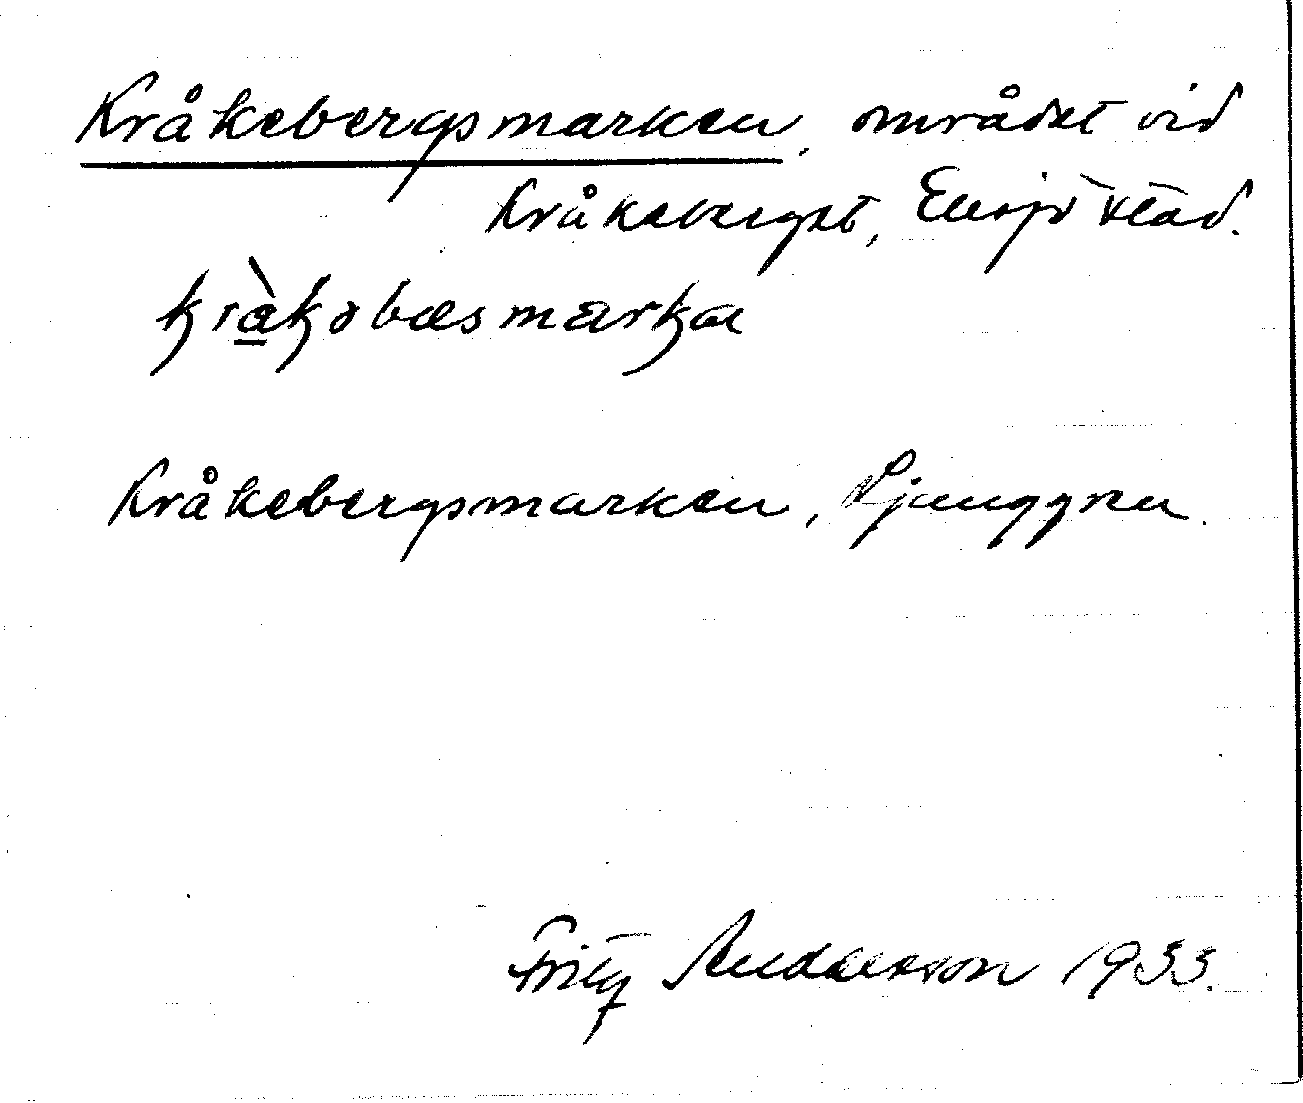 Kråkebergsmarken, området vid
Kråkeberget, Eksjö stad.
kråkəbæsmarka
Kråkebergsmarken, Ljunggren.
Fritz Andersson 1933.